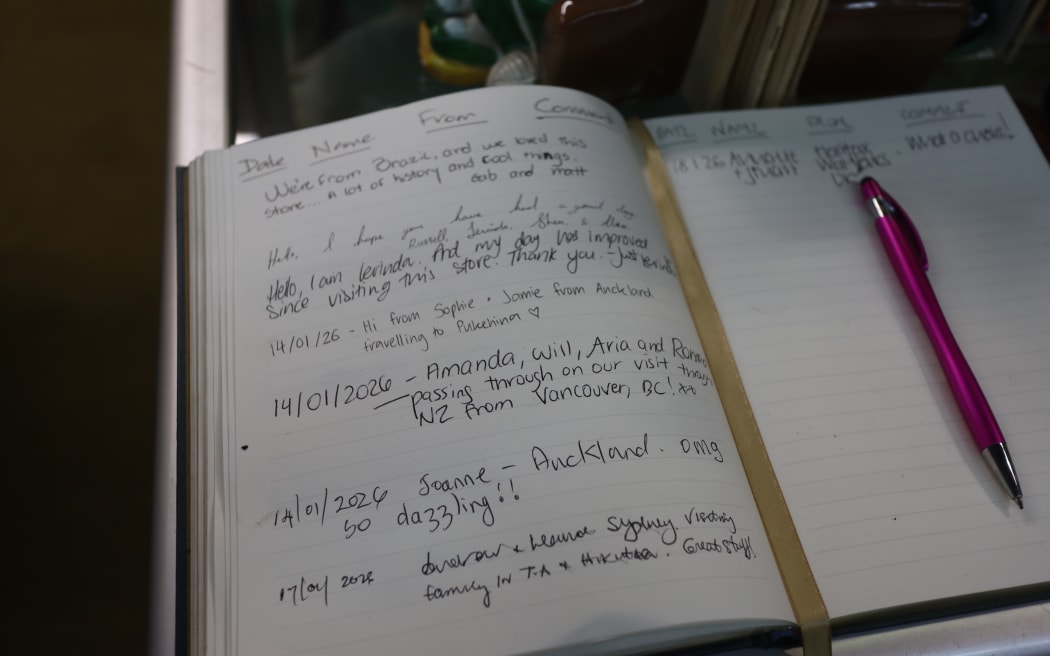 Date Name From Comment
We're from Brazil, and we loved this
store... A lot of history and cool things.
Gab and Matt
Hello, I hope you have had a good day
Russell,
Hello, I am lerinda. And my day has improved
since visiting this store. Thank you - Just
14/01/26 - Hi from Sophie + Jamie from Auckland
travelling to Pukehina ♡
14/01/2026 - Amanda, Will, Aria and
passing through on our visit through
NZ from Vancouver, BC!
14/01/2026 Joanne - Auckland. omg
so dazzling!!
17/01/2026 Andrew + Sydney. Visiting
family IN T.A + . Great Stuff!
DATE NAME FROM COMMENT
18 1 26 What a classic!